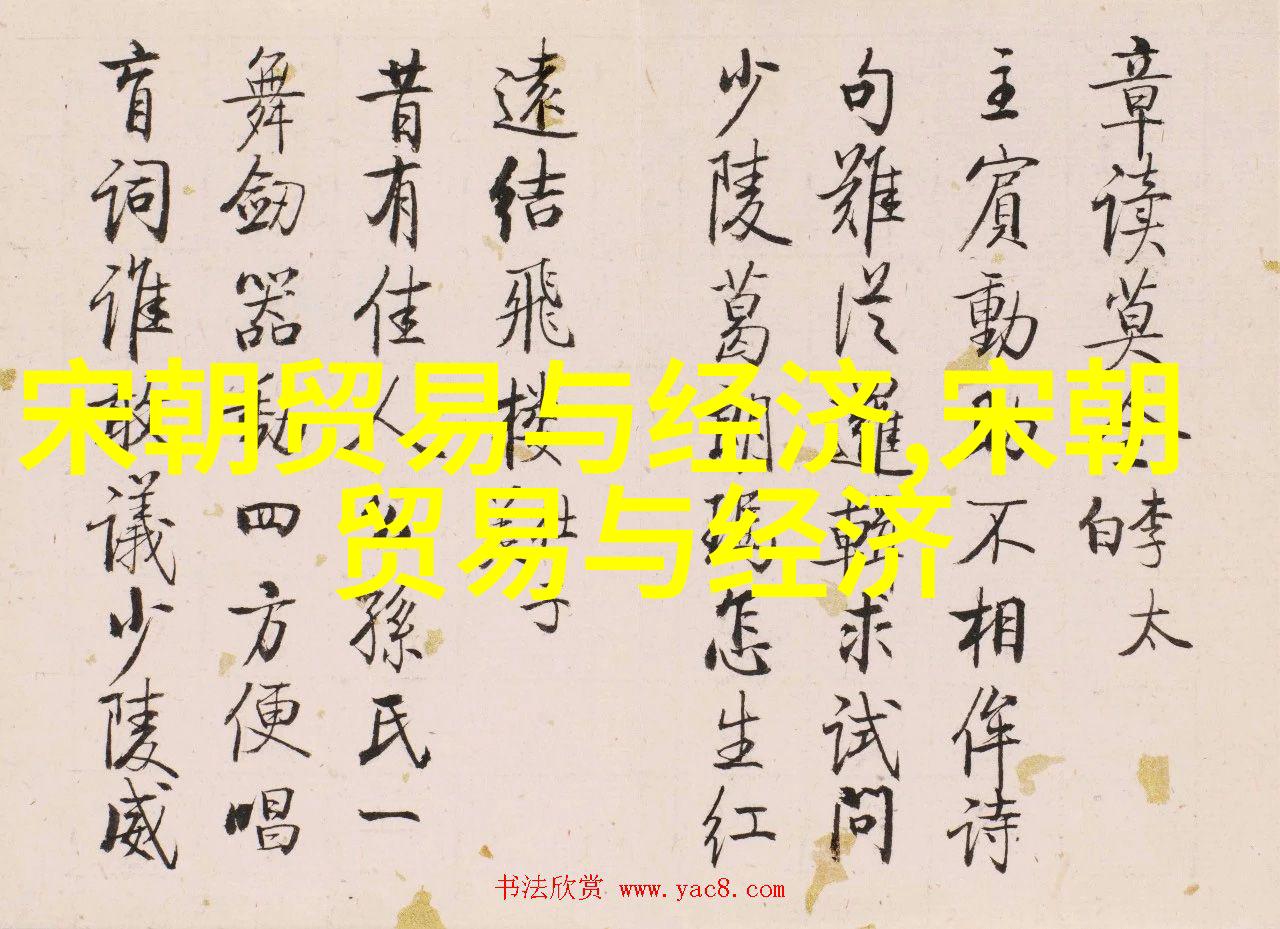 宋朝贸易与经济,宋朝
贸易与经济
章读莫李太白
主賓動不相侔詩
句難從邏求试問
少陵葛怎生红
遠结飛樓
昔有佳人公孫氏一
舞劔器動四方便唱
盲词谁敢议少陵威
书法欣赏 www.yac8.com